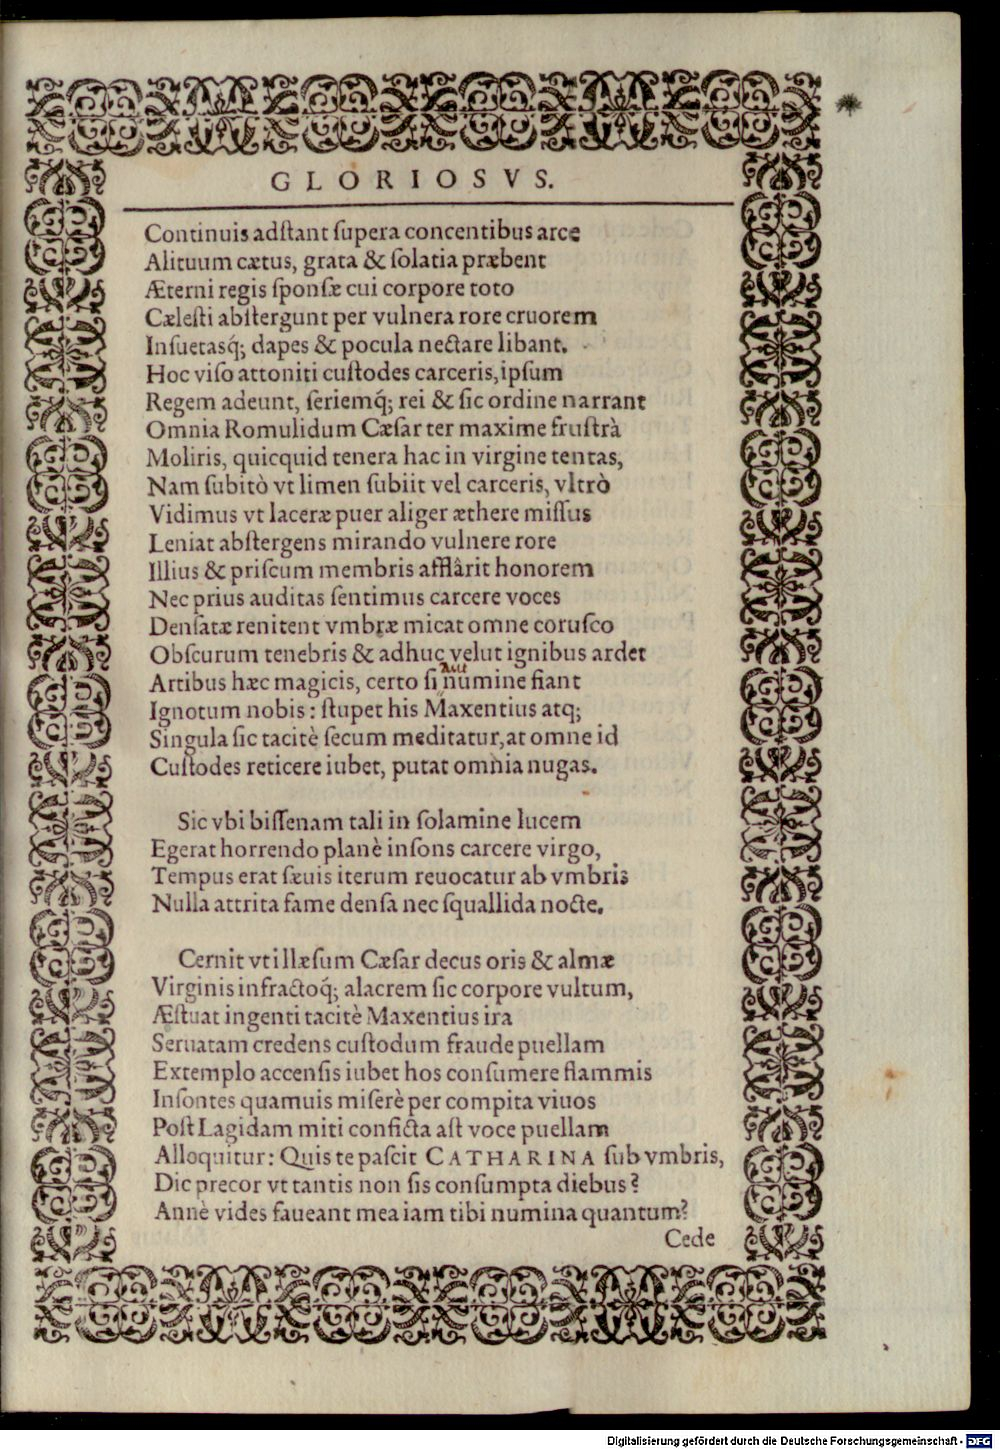 GLORIOSVS.
Continuis adſtant ſupera concentibus arce
Alituum cætus, grata & ſolatia præbent
Æterni regis ſponſæ cui corpore toto
Cæleſti abſtergunt per vulnera rore cruorem
Inſuetasq́; dapes & pocula nectare libant.
Hoc viſo attoniti cuſtodes carceris, ipſum
Regem adeunt, ſeriemq́; rei & ſic ordine narrant
Omnia Romulidum Cæſar ter maxime fruſtrà
Moliris, quicquid tenera hac in virgine tentas,
Nam ſubitò vt limen ſubiit vel carceris, vltrò
Vidimus vt laceræ puer aliger æthere miſſus
Leniat abſtergens mirando vulnere rore
Illius & priſcum membris afflârit honorem
Nec prius auditas ſentimus carcere voces
Denſatæ renitent vmbræ micat omne coruſco
Obſcurum tenebris & adhuc velut ignibus ardet
Aut
Artibus hæc magicis, certo ſi numine fiant
Ignotum nobis: ſtupet his Maxentius atq;
Singula ſic tacitè ſecum meditatur, at omne id
Cuſtodes reticere iubet, putat omnia nugas.
Sic vbi biſſenam tali in ſolamine lucem
Egerat horrendo planè inſons carcere virgo,
Tempus erat ſæuis iterum reuocatur ab vmbris
Nulla attrita fame denſa nec ſquallida nocte.
Cernit vt illæſum Cæſar decus oris & almæ
Virginis infractoq́; alacrem ſic corpore vultum,
Æſtuat ingenti tacitè Maxentius ira
Seruatam credens cuſtodum fraude puellam
Extemplo accenſis iubet hos conſumere flammis
Inſontes quamuis miſerè per compita viuos
Poſt Lagidam miti conficta aſt voce puellam
Alloquitur: Quis te paſcit CATHARINA ſub vmbris,
Dic precor vt tantis non ſis conſumpta diebus?
Annè vides faueant mea iam tibi numina quantum?
Cede
Digitalisierung gefördert durch die Deutsche Forschungsgemeinschaft - DFG